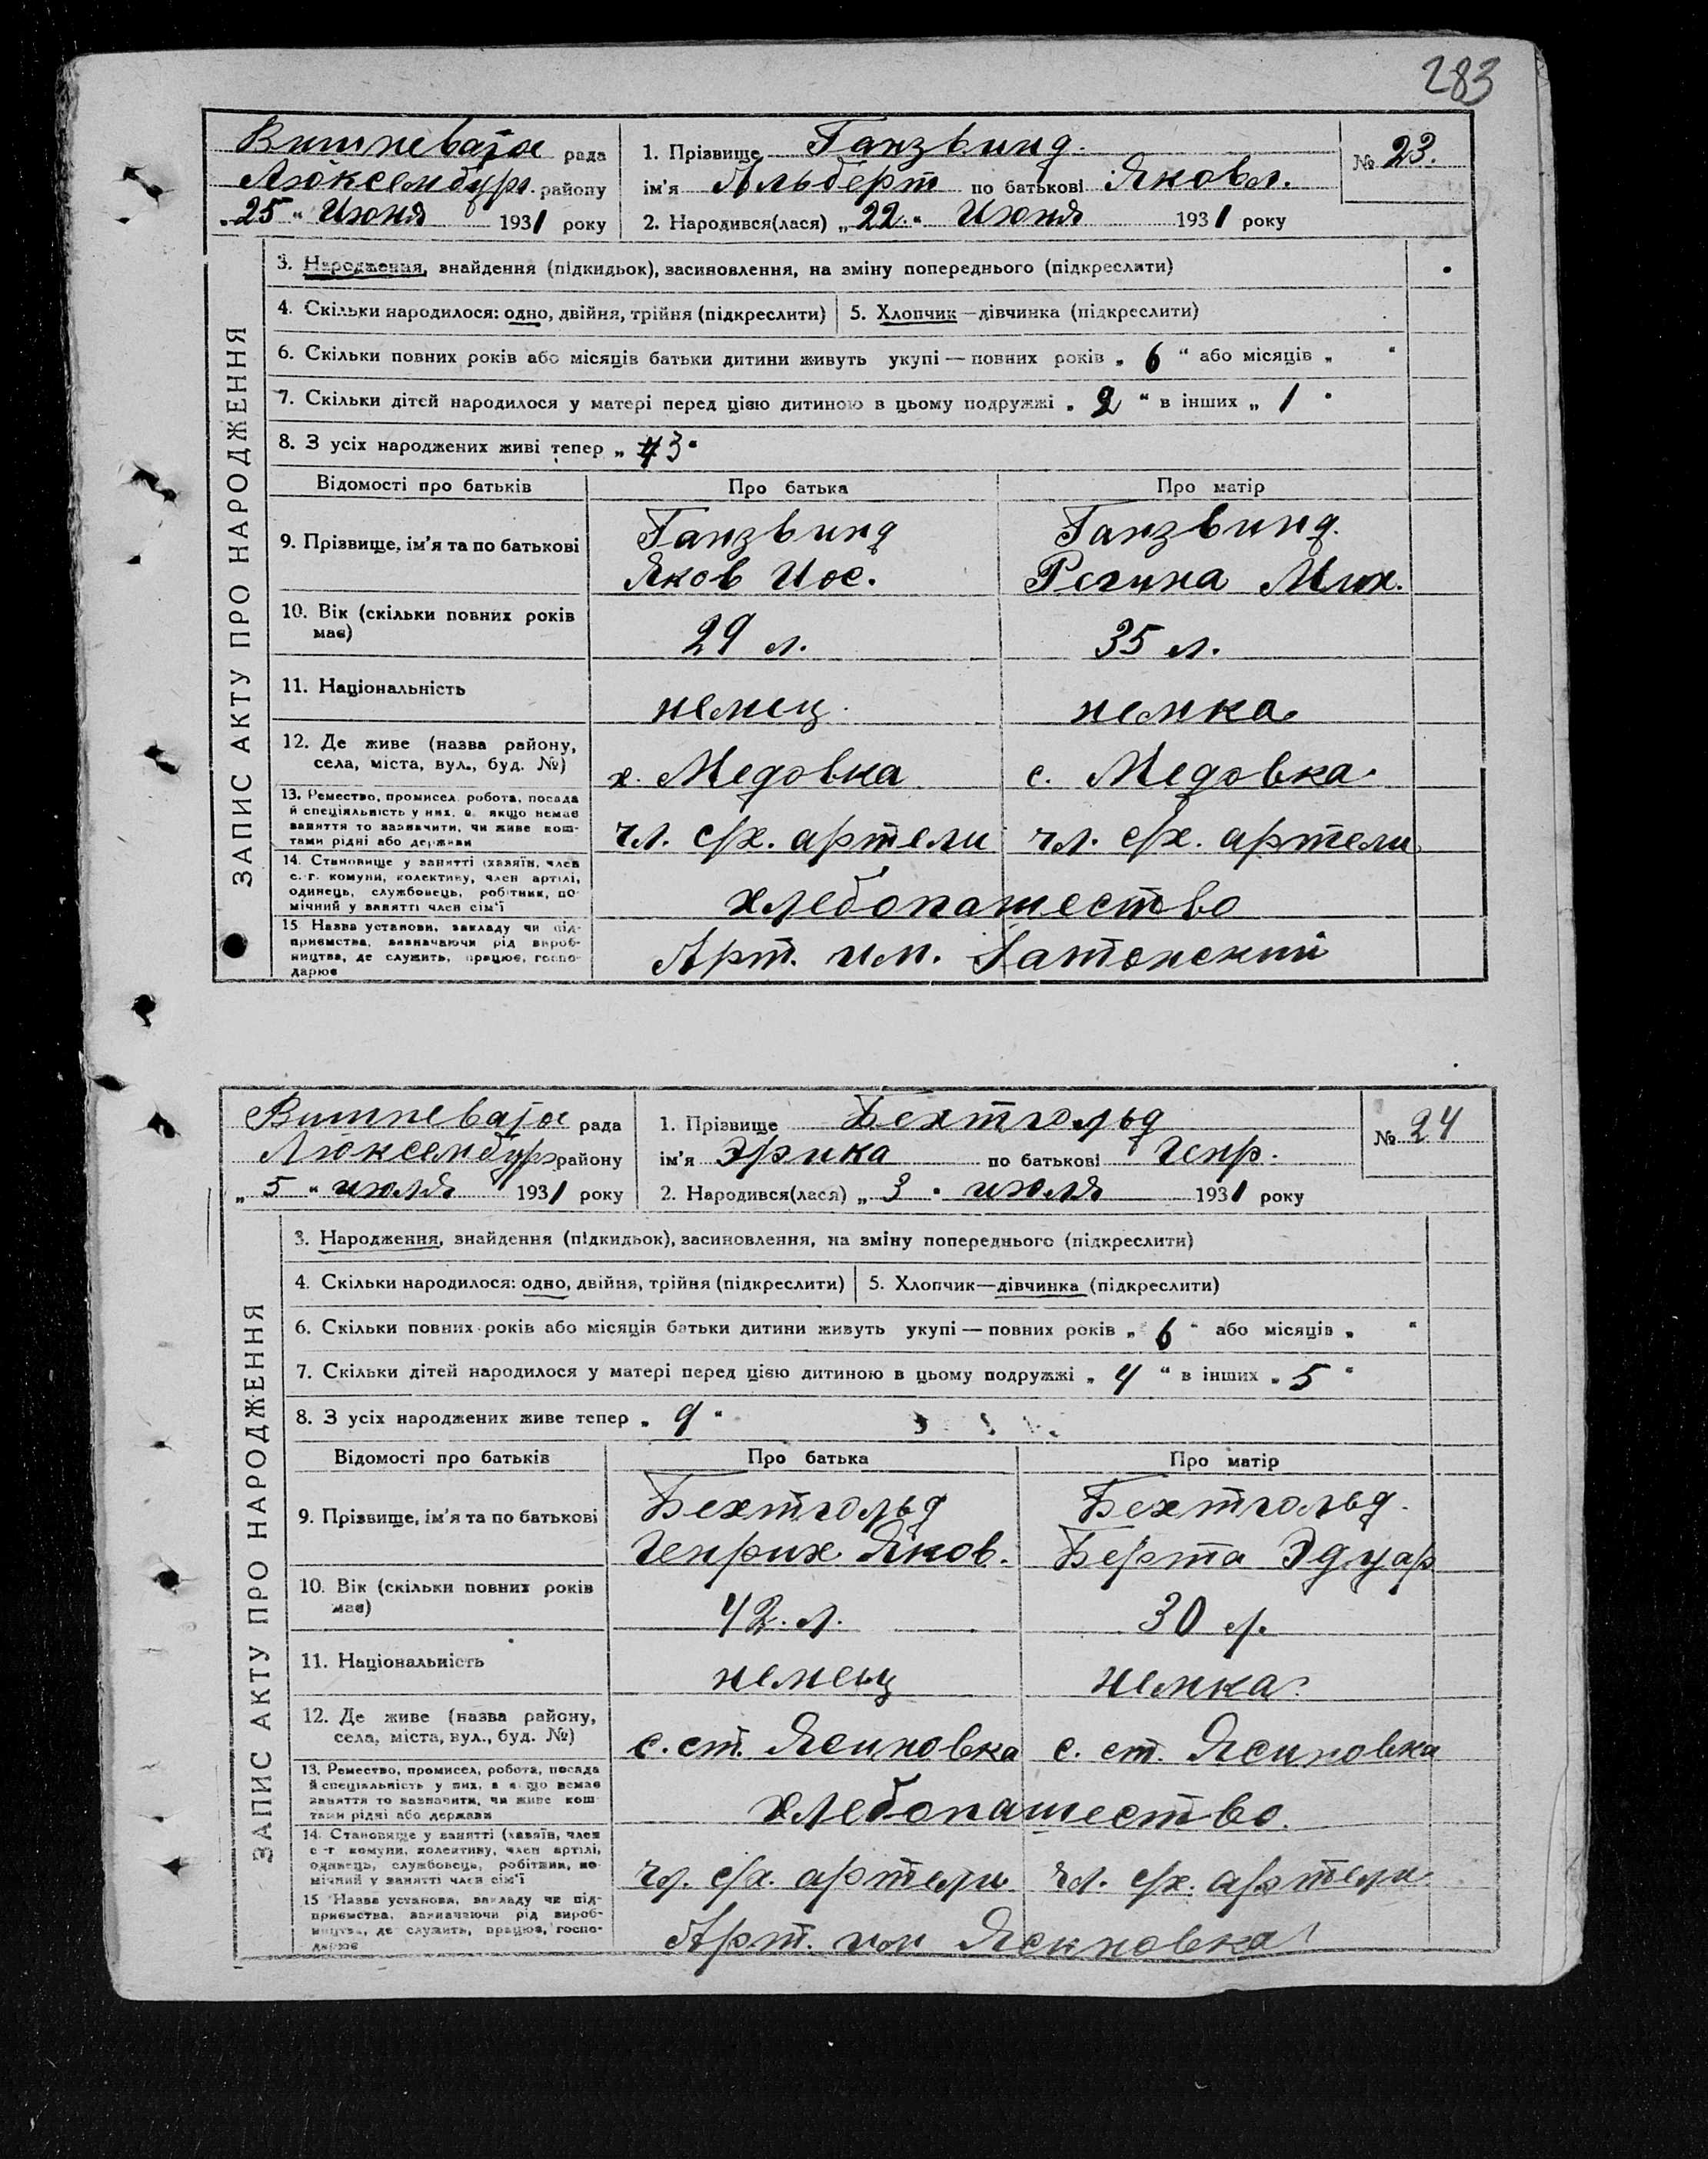 283
Вишневатое рада
Люксембург. району
„25“ Июня 1931 року
1. Прізвище Ганзвинд.
ім'я Альберт по батькові Яковл.
2. Народився(лася) „22.“ Июня 1931 року
№ 23.
ЗАПИС АКТУ ПРО НАРОДЖЕННЯ
3. Народження, знайдення (підкидьок), засиновлення, на зміну попереднього (підкреслити)
4. Скільки народилося: одно, двійня, трійня (підкреслити) 5. Хлопчик—дівчинка (підкреслити)
6. Скільки повних років або місяців батьки дитини живуть укупі — повних років „ 6 “ або місяців „ “
7. Скільки дітей народилося у матері перед цією дитиною в цьому подружжі „ 2 “ в інших „ 1 “
8. З усіх народжених живі тепер „ 3 “
Відомості про батьків Про батька Про матір
9. Прізвище, ім'я та по батькові
Ганзвинд Ганзвинд.
Яков Иос. Регина Мих.
10. Вік (скільки повних років
має)
29 л. 35 л.
11. Національність
немец. немка
12. Де живе (назва району,
села, міста, вул., буд. №)
х. Медовка с. Медовка.
13. Ремество, промисел, робота, посада
й спеціяльність у них, а якщо немає
заняття то зазначити, чи живе кош-
тами рідні або держави
чл. с/х. артели чл. с/х. артели
14. Становище у занятті (хазяїн, член
с.-г. комуни, колективу, член артілі,
одинець, службовець, робітник, по-
мічний у занятті член сім'ї
хлебопашество
15 Назва установи, закладу чи під-
приємства, визначаючи рід вироб-
ництва, де служить, працює, госпо-
дарює
Арт. им. Затонский
Вишневатое рада
Люксембург району
„ 5 “ июля 1931 року
1. Прізвище Бехтгольд
ім'я Эрика по батькові Генр.
2. Народився(лася) „ 3 “ июля 1931 року
№ 24
ЗАПИС АКТУ ПРО НАРОДЖЕННЯ
3. Народження, знайдення (підкидьок), засиновлення, на зміну попереднього (підкреслити)
4. Скільки народилося: одно, двійня, трійня (підкреслити) 5. Хлопчик—дівчинка (підкреслити)
6. Скільки повних років або місяців батьки дитини живуть укупі — повних років „ 6 “ або місяців „ “
7. Скільки дітей народилося у матері перед цією дитиною в цьому подружжі „ 4 “ в інших „ 5 “
8. З усіх народжених живе тепер „ 9 “
Відомості про батьків Про батька Про матір
9. Прізвище, ім'я та по батькові
Бехтгольд Бехтгольд.
Генрих Яков. Берта Эдуар
10. Вік (скільки повних років
має)
42. л. 30 л.
11. Національність
немец немка.
12. Де живе (назва району,
села, міста, вул., буд. №)
с. ст. Ясиновка с. ст. Ясиновка
13. Ремество, промисел, робота, посада
й спеціяльність у них, а якщо немає
заняття то зазначити, чи живе кош-
тами рідні або держави
хлебопашество.
14. Становище у занятті (хазяїн, член
с.-г. комуни, колективу, член артілі,
одинець, службовець, робітник, по-
мічний у занятті член сім'ї
чл. с/х. артели чл. с/х. артели
15 Назва установи, закладу чи під-
приємства, визначаючи рід вироб-
ництва, де служить, працює, госпо-
дарює
Арт. им Ясиновка